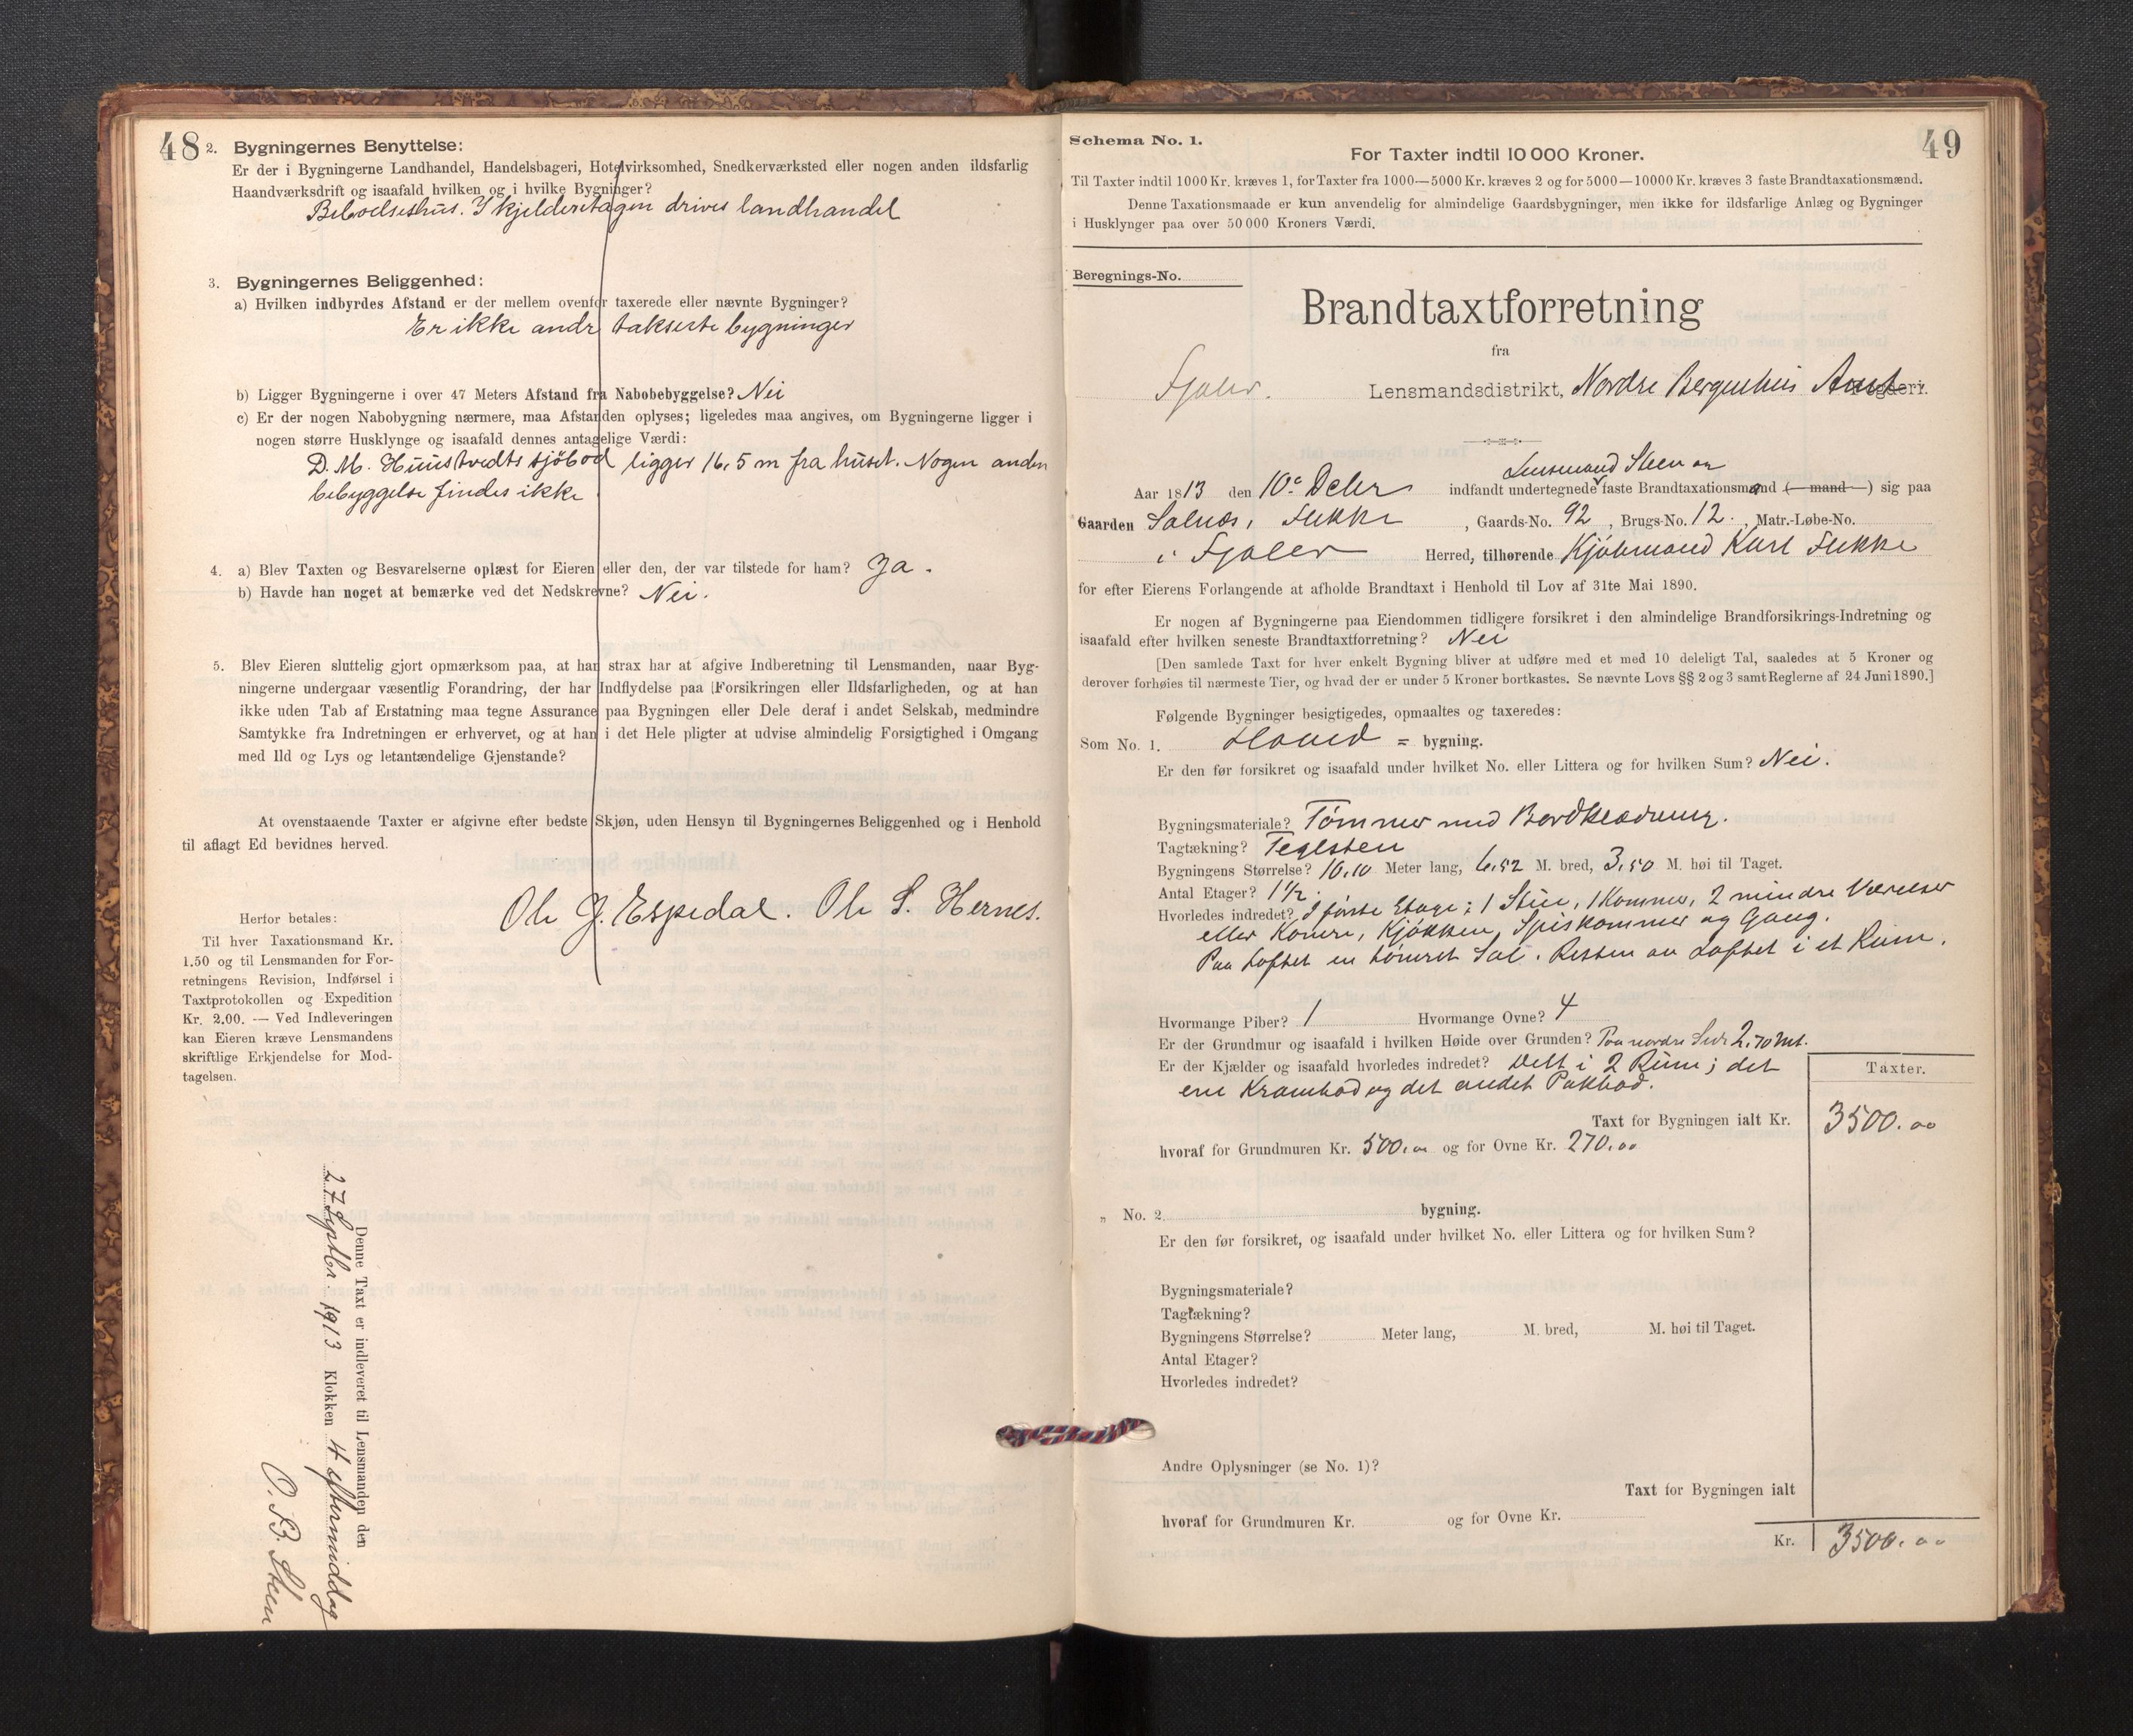 48
2. Bygningernes Benyttelse:
Er der i Bygningerne Landhandel, Handelsbageri, Hotelvirksomhed, Snedkerværksted eller nogen anden ildsfarlig
Haandværksdrift og isaafald hvilken og i hvilke Bygninger?
Beboelseshus. I kjelderetagen drives landhandel
3. Bygningernes Beliggenhed:
a) Hvilken indbyrdes Afstand er der mellem ovenfor taxerede eller nævnte Bygninger?
Er ikke andr takserte bygninger
b) Ligger Bygningerne i over 47 Meters Afstand fra Nabobebyggelse? Nei
c) Er der nogen Nabobygning nærmere, maa Afstanden oplyses; ligeledes maa angives, om Bygningerne ligger i
nogen større Husklynge og isaafald dennes antagelige Værdi:
D. M. Huustvedts sjöbod ligger 16,5 m fra huset. Nogen anden
bebyggelse findes ikke
4. a) Blev Taxten og Besvarelserne oplæst for Eieren eller den, der var tilstede for ham? Ja.
b) Havde han noget at bemærke ved det Nedskrevne? Nei.
5. Blev Eieren sluttelig gjort opmærksom paa, at han strax har at afgive Indberetning til Lensmanden, naar Byg-
ningerne undergaar væsentlig Forandring, der har Indflydelse paa Forsikringen eller Ildsfarligheden, og at han
ikke uden Tab af Erstatning maa tegne Assurance paa Bygningen eller Dele deraf i andet Selskab, medmindre
Samtykke fra Indretningen er erhvervet, og at han i det Hele pligter at udvise almindelig Forsigtighed i Omgang
med Ild og Lys og letantændelige Gjenstande?
At ovenstaaende Taxter er afgivne efter bedste Skjøn, uden Hensyn til Bygningernes Beliggenhed og i Henhold
til aflagt Ed bevidnes herved.
Ole J. Espedal. Ole S. Hernes.
Herfor betales:
Til hver Taxationsmand Kr.
1.50 og til Lensmanden for For-
retningens Revision, Indførsel i
Taxtprotokollen og Expedition
Kr. 2.00. — Ved Indleveringen
kan Eieren kræve Lensmandens
skriftlige Erkjendelse for Mod-
tagelsen.
Denne Taxt er indleveret til Lensmanden den
27 Septbr. 1913 Klokken 4 eftermiddag
O. B. Steen
49
Schema No. 1.
For Taxter indtil 10 000 Kroner.
Til Taxter indtil 1000 Kr. kræves 1, for Taxter fra 1000—5000 Kr. kræves 2 og for 5000—10000 Kr. kræves 3 faste Brandtaxationsmænd.
Denne Taxationsmaade er kun anvendelig for almindelige Gaardsbygninger, men ikke for ildsfarlige Anlæg og Bygninger
i Husklynger paa over 50 000 Kroners Værdi.
Beregnings-No.
Brandtaxtforretning
fra
Fjaler. Lensmandsdistrikt, Nordre Bergenhus Amt Fogderi.
Lensmand Steen an
Aar 1813 den 10de Debr indfandt undertegnede faste Brandtaxationsmænd (— mand —) sig paa
Gaarden Salnes, Flekke, Gaards-No. 92, Brugs-No. 12., Matr.-Løbe-No.
i Fjaler Herred, tilhørende Kjøbmand Karl Flekke
for efter Eierens Forlangende at afholde Brandtaxt i Henhold til Lov af 31te Mai 1890.
Er nogen af Bygningerne paa Eiendommen tidligere forsikret i den almindelige Brandforsikrings-Indretning og
isaafald efter hvilken seneste Brandtaxtforretning? Nei
[Den samlede Taxt for hver enkelt Bygning bliver at udføre med et med 10 deleligt Tal, saaledes at 5 Kroner og
derover forhøies til nærmeste Tier, og hvad der er under 5 Kroner bortkastes. Se nævnte Lovs §§ 2 og 3 samt Reglerne af 24 Juni 1890.]
Følgende Bygninger besigtigedes, opmaaltes og taxeredes:
Som No. 1. Hoved = bygning.
Er den før forsikret og isaafald under hvilket No. eller Littera og for hvilken Sum? Nei.
Bygningsmateriale? Tømmer med Bordklædning.
Tagtækning? Teglsten
Bygningens Størrelse? 10,10 Meter lang, 6,52 M. bred, 3,50 M. høi til Taget.
Antal Etager? 1½.
Hvorledes indredet? I første Etage: 1 Stue, 1 Kammer, 2 mindre Værelser
eller Komre, Kjøkken, Spiskammer og Gang.
Paa Loftet en tømret Sal. Resten av Loftet i et Rum.
Hvormange Piber? 1 Hvormange Ovne? 4
Er der Grundmur og isaafald i hvilken Høide over Grunden? Paa nordre Side 2,70 mt.
Er der Kjælder og isaafald hvorledes indredet? Delt i 2 Rum; det
ene Krambod og det andet Pakbod.
Taxter.
Taxt for Bygningen ialt Kr. 3500.00
hvoraf for Grundmuren Kr. 500.00 og for Ovne Kr. 270.00
" No. 2. bygning.
Er den før forsikret, og isaafald under hvilket No. eller Littera og for hvilken Sum?
Bygningsmateriale?
Tagtækning?
Bygningens Størrelse? Meter lang, M. bred, M. høi til Taget.
Antal Etager?
Hvorledes indredet?
Andre Oplysninger (se No. 1)?
Taxt for Bygningen ialt
hvoraf for Grundmuren Kr. og for Ovne Kr.
Kr. 3500.00